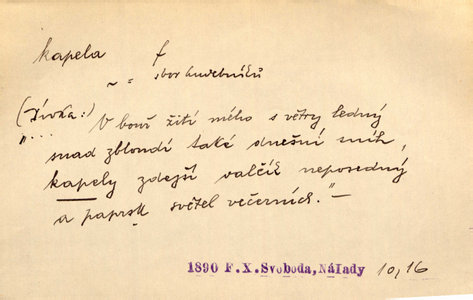 kapela f
~ = sbor hudebníků
(Dívka:)
"... V bouř žití mého s větry ledný
snad zbloudí také dnešní mih,
kapely zdejší valčík neposedný
a paprsk světel večerních." —
1890 F.X.Svoboda, Nálady 10,16